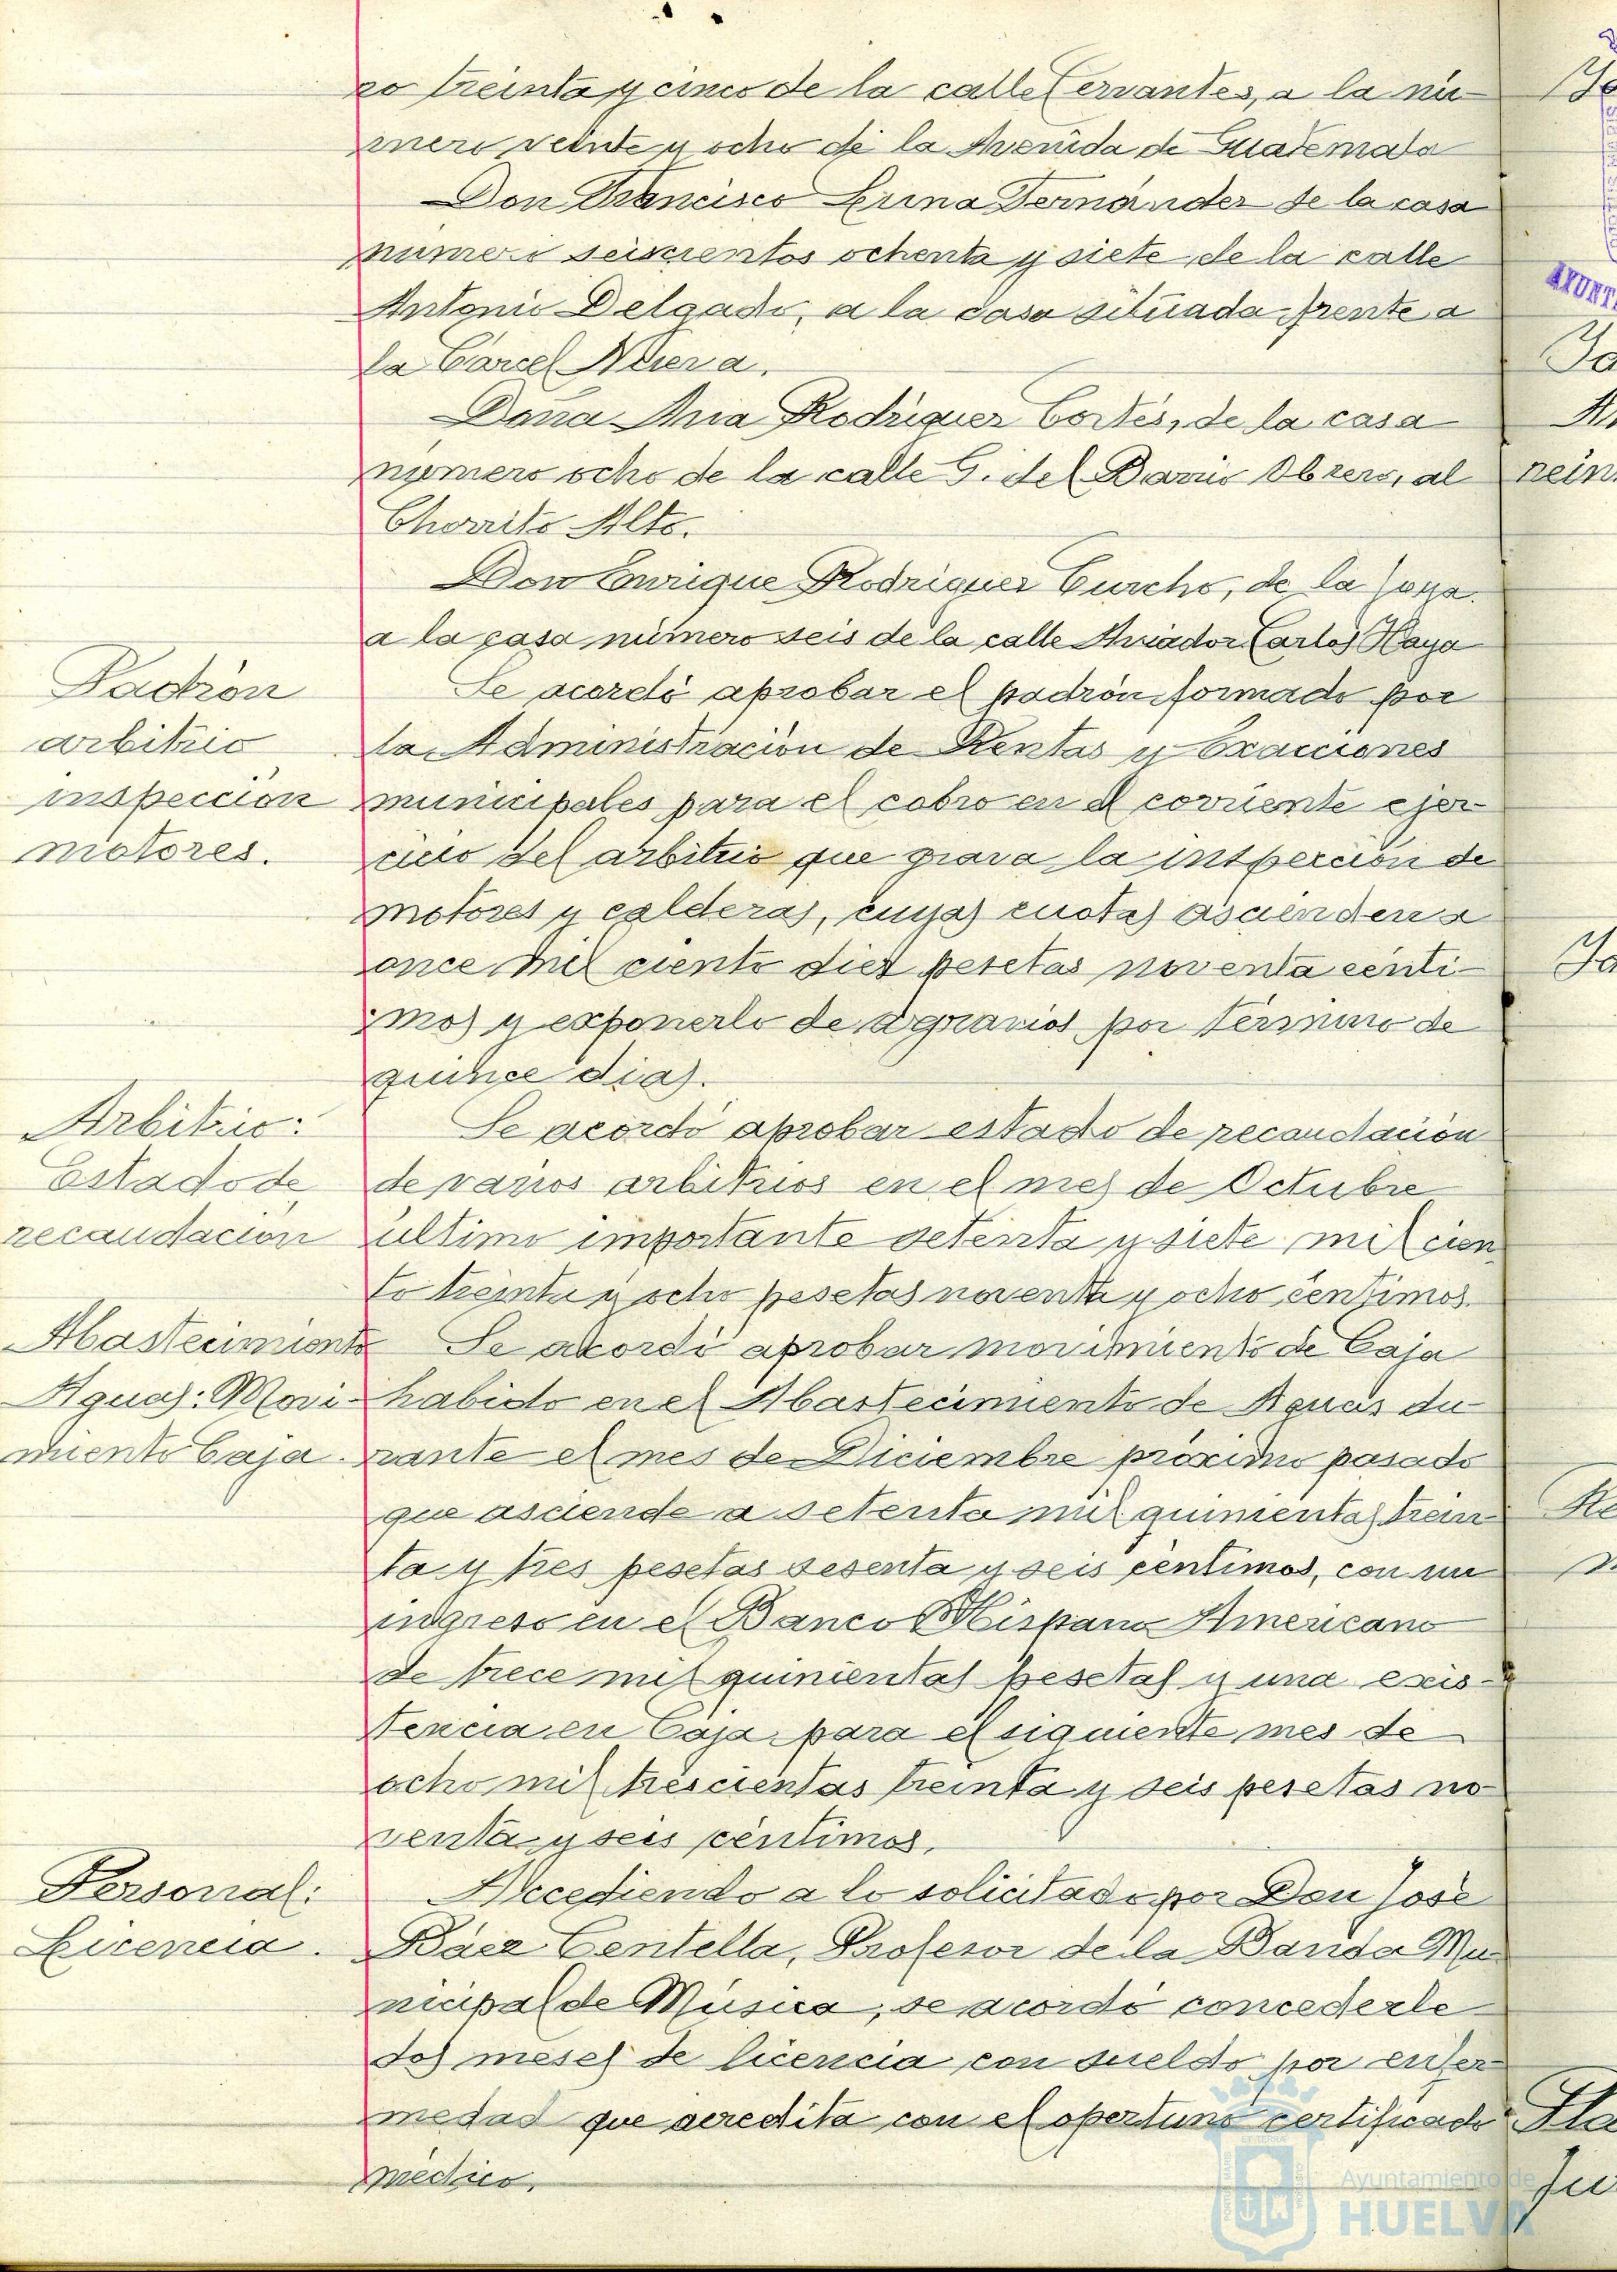 ro treinta y cinco de la calle Cervantes, a la nú-
mero veinte y ocho de la Avenida de Guatemala
Don Francisco Luna Fernández de la casa
número seiscientos ochenta y siete de la calle
Antonio Delgado, a la casa situada frente a
la Carcel Nueva.
Doña Ana Rodriguez Cortés, de la casa
número ocho de la calle G. del Barrio Obrero, al
Chorrito Alto.
Don Enrique Rodriguez Curcho, de la Joya
a la casa número seis de la calle Aviador Carlos Haya
Padrón
arbitrio
inspección
motores.
Se acordó aprobar el padrón formado por
la Administración de Rentas y Exacciones
municipales para el cobro en el corriente ejer-
cicio del arbitrio que grava la intspección de
motores y calderas, cuyas cuotas ascienden a
once mil ciento diez pesetas noventa centi-
mos y exponerlo de agravios por término de
quince dias.
Arbitrio:
Estado de
recaudación
Se acordó aprobar estado de recaudación
de varios arbitrios en el mes de Octubre
último importante setenta y siete mil cien
to treinta y ocho pesetas noventa y ocho centimos.
Abastecimiento
Aguas: Movi-
miento Caja.
Se acordó aprobar movimiento de Caja
habido en el Abastecimiento de Aguas du
rante el mes de Diciembre próximo pasado
que asciende a setenta mil quinientas trein
ta y tres pesetas sesenta y seis centimos, con un
ingreso en el Banco Hispano Americano
de trece mil quinientas pesetas y una exis-
tencia en Caja para el siguiente mes de
ocho mil trescientas treinta y seis pesetas no
venta y seis céntimos.
Personal:
Licencia.
Accediendo a lo solicitado por Don José
Báez Centella, Profesor de la Banda Mu
nicipal de Música, se acordó concederle
dos meses de licencia con sueldo por enfer
medad que acredita con el oportuno certificado
médico.
nein
AYUNTA
Ayuntamiento de
HUELVA